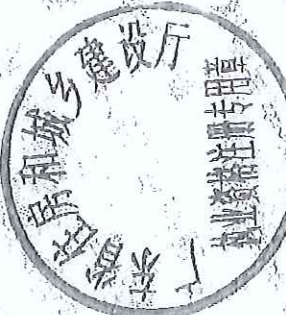 广东省住房和城乡建设厅
执业资格注册专用章